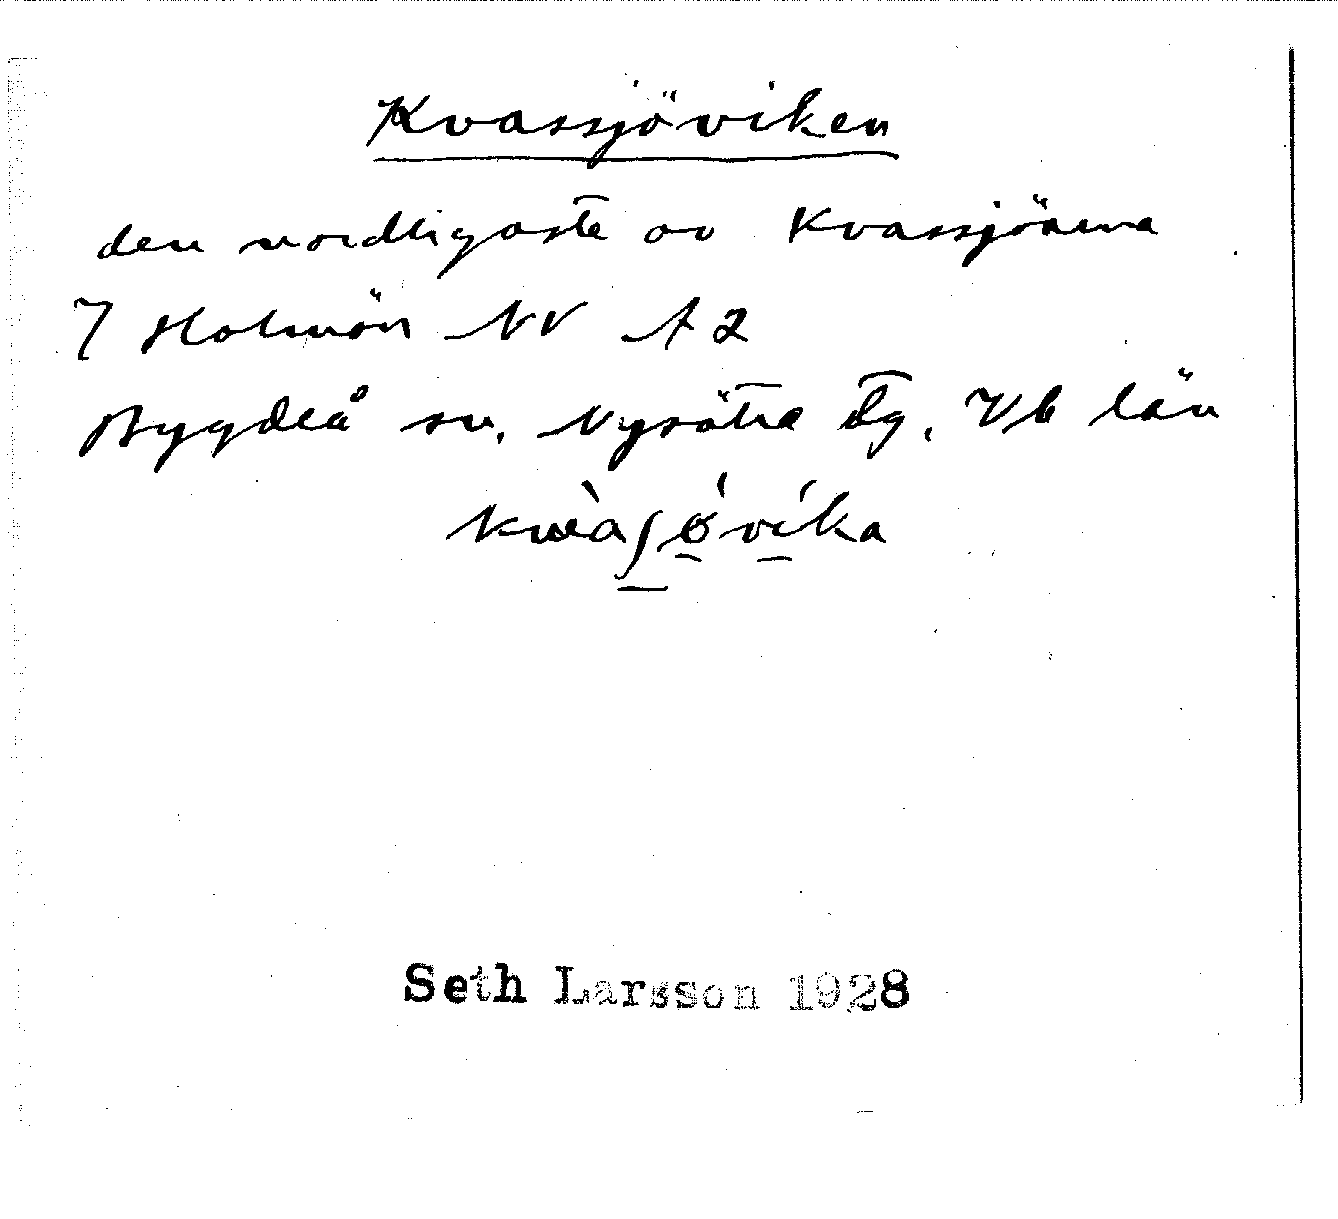 Kvassjöviken
den nordligaste av Kvassjöarna
7 Holmön NV A2
Bygdeå sn, Nysätra tg, Vb län
Seth Larsson 1928